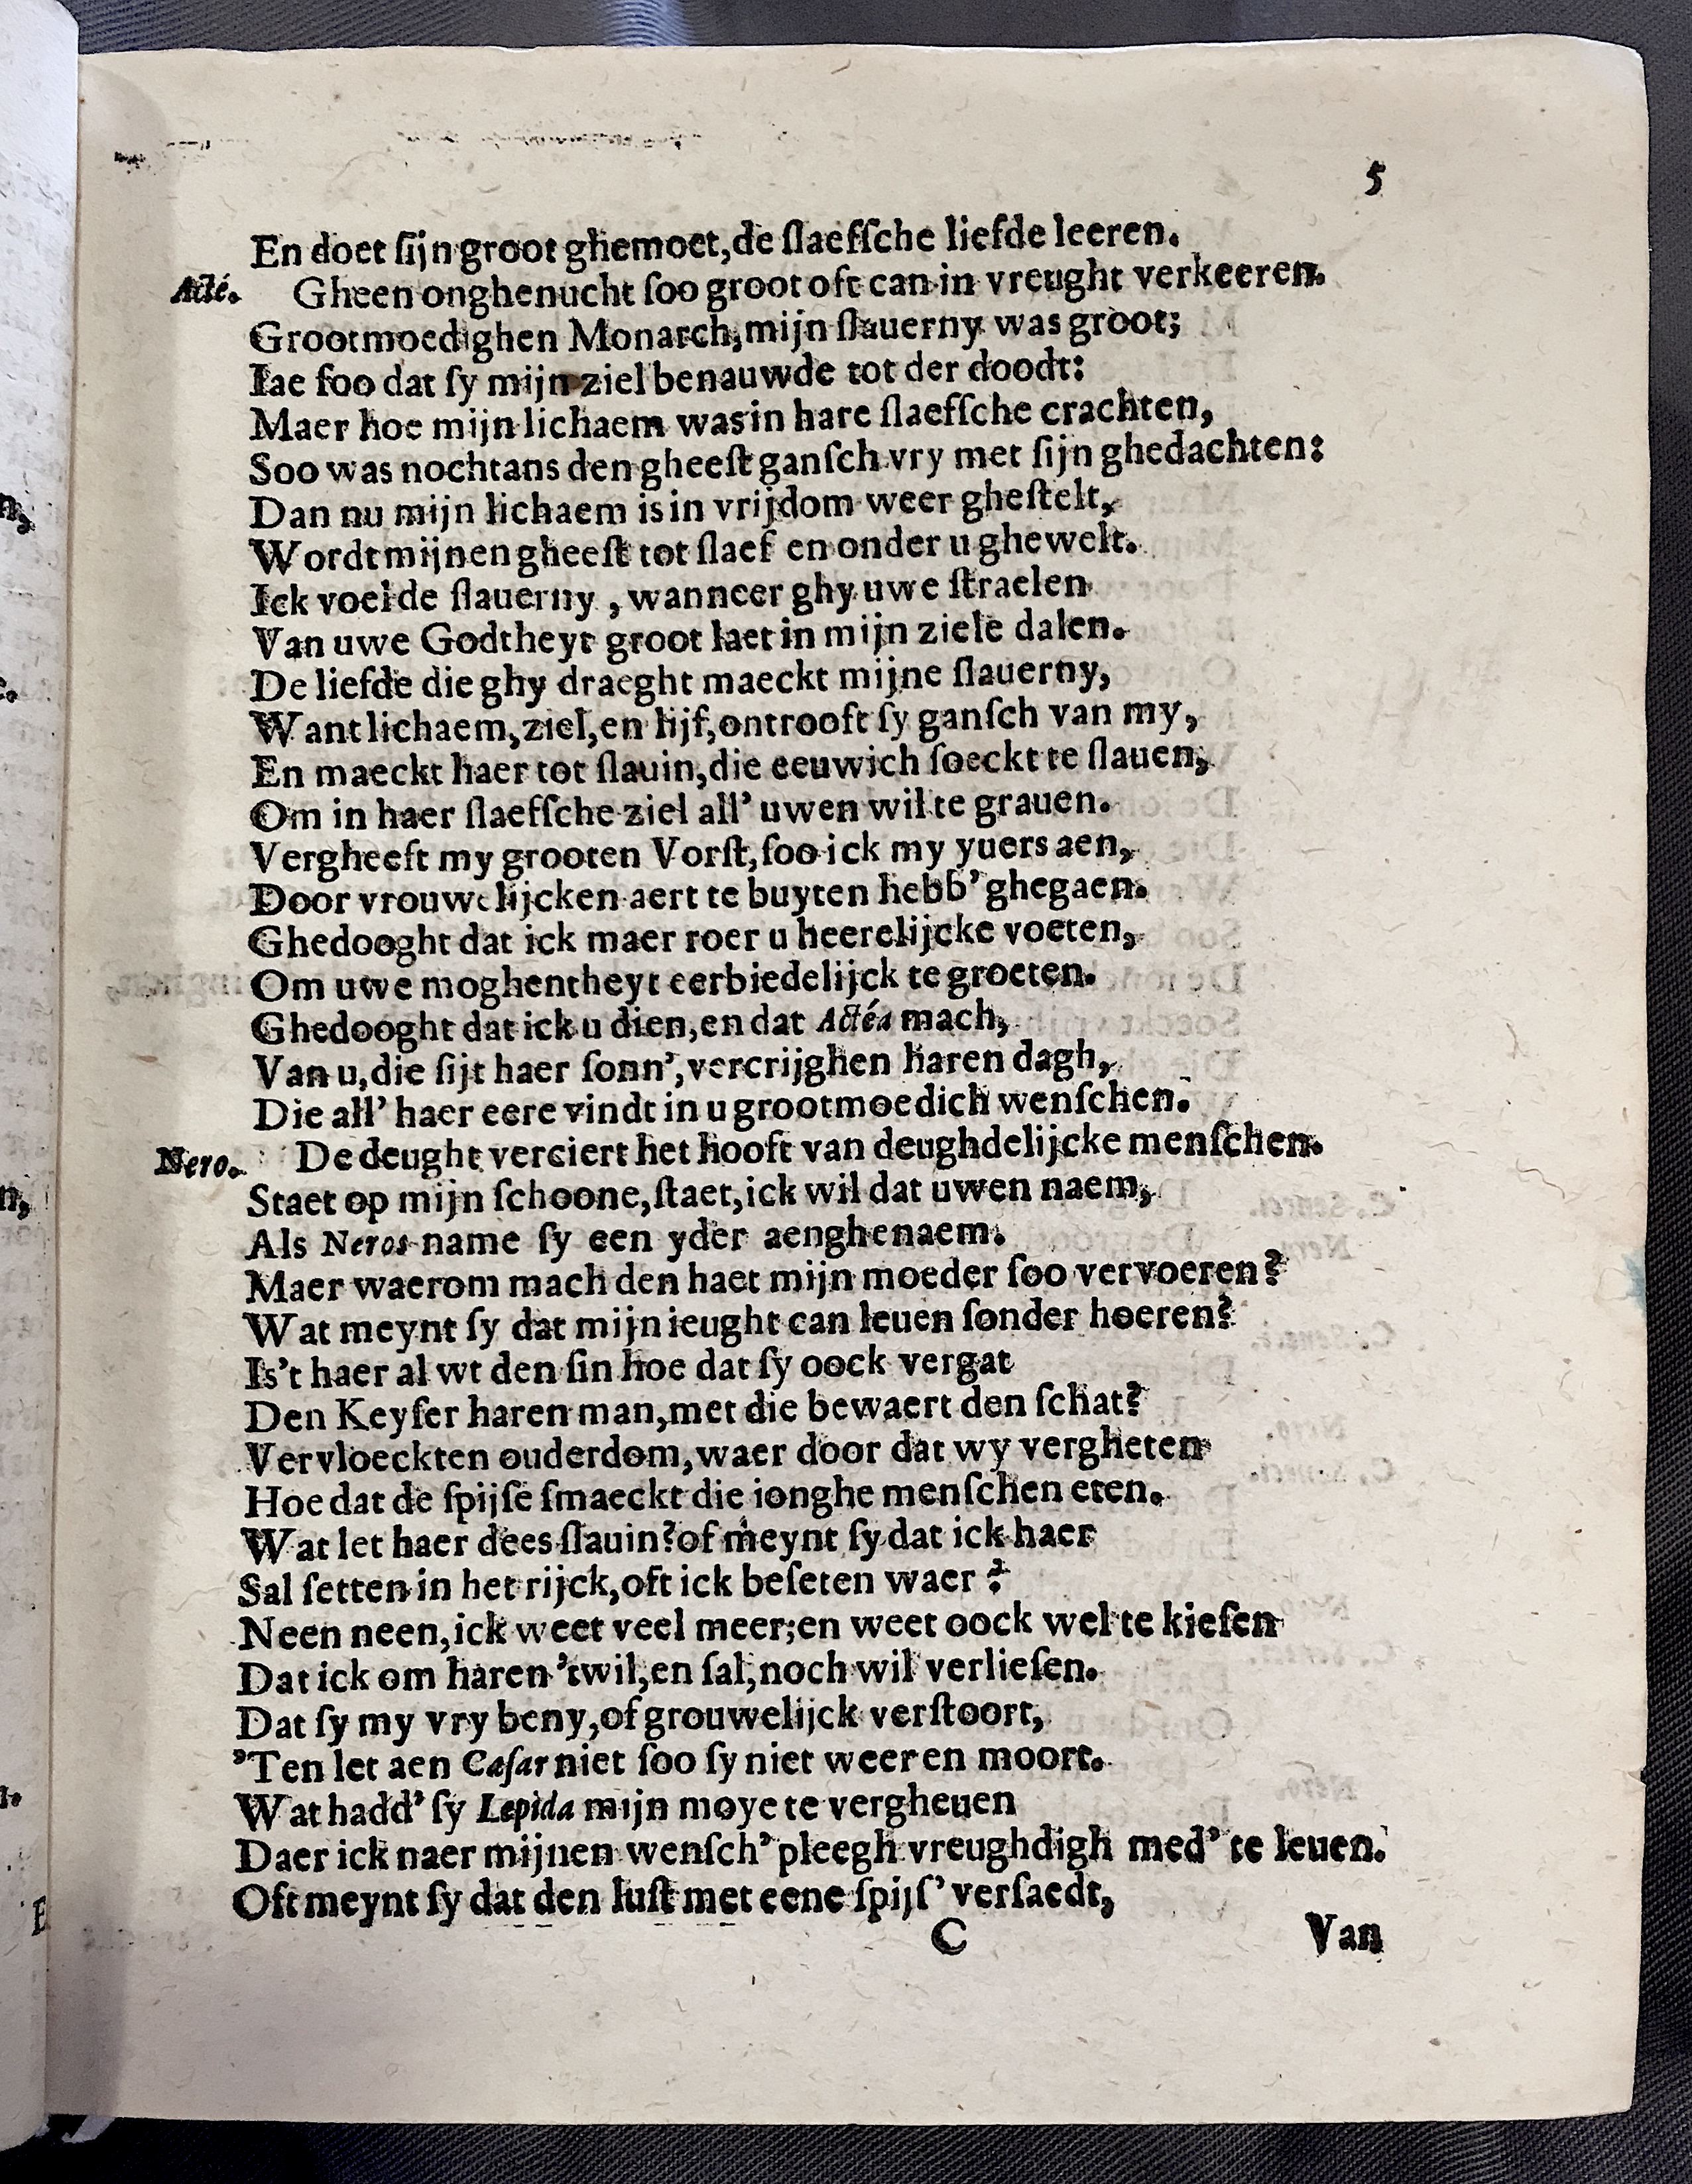 5
En doet ſijn groot ghemoet, de ſlaefſche liefde leeren.
Acté. Gheen onghenucht ſoo groot oft can in vreught verkeeren.
Grootmoedighen Monarch, mijn ſlauerny was groot;
Iae ſoo dat ſy mijn ziel benauwde tot der doodt:
Maer hoe mijn lichaem was in hare ſlaefſche crachten,
Soo was nochtans den gheeſt ganſch vry met ſijn ghedachten:
Dan nu mijn lichaem is in vrijdom weer gheſtelt,
Wordt mijnen gheeſt tot ſlaef en onder u ghewelt.
Ick voelde ſlauerny , wanneer ghy uwe ſtraelen
Van uwe Godtheyt groot laet in mijn ziele dalen.
De liefde die ghy draeght maeckt mijne ſlauerny,
Want lichaem, ziel, en lijf, ontrooft ſy ganſch van my,
En maeckt haer tot ſlauin, die eeuwich ſoeckt te ſlauen,
Om in haer ſlaefſche ziel all' uwen wil te grauen.
Vergheeft my grooten Vorſt, ſoo ick my yuers aen,
Door vrouwelijcken aert te buyten hebb' ghegaen.
Ghedooght dat ick maer roer u heerelijcke voeten,
Om uwe moghentheyt eerbiedelijck te groeten.
Ghedooght dat ick u dien, en dat Actéa mach,
Van u, die ſijt haer ſonn', vercrijghen haren dagh,
Die all' haer eere vindt in u grootmoedich wenſchen.
Nero. De deught verciert het hooft van deughdelijcke menſchen.
Staet op mijn ſchoone, ſtaet, ick wil dat uwen naem,
Als Neros name ſy een yder aenghenaem.
Maer waerom mach den haet mijn moeder ſoo vervoeren?
Wat meynt ſy dat mijn ieught can leuen ſonder hoeren?
Is't haer al wt den ſin hoe dat ſy oock vergat
Den Keyſer haren man, met die bewaert den ſchat?
Vervloeckten ouderdom, waer door dat wy vergheten
Hoe dat de ſpijſe ſmaeckt die ionghe menſchen eten.
Wat let haer dees ſlauin? of meynt ſy dat ick haer
Sal ſetten in het rijck, oft ick beſeten waer ?
Neen neen, ick weet veel meer; en weet oock wel te kieſen
Dat ick om haren 'twil, en ſal, noch wil verlieſen.
Dat ſy my vry beny, of grouwelijck verſtoort,
'Ten let aen Cæſar niet ſoo ſy niet weer en moort.
Wat hadd' ſy Lepida mijn moye te vergheuen
Daer ick naer mijnen wenſch' pleegh vreughdigh med' te leuen.
Oft meynt ſy dat den luſt met eene ſpijſ' verſaedt,
C Van